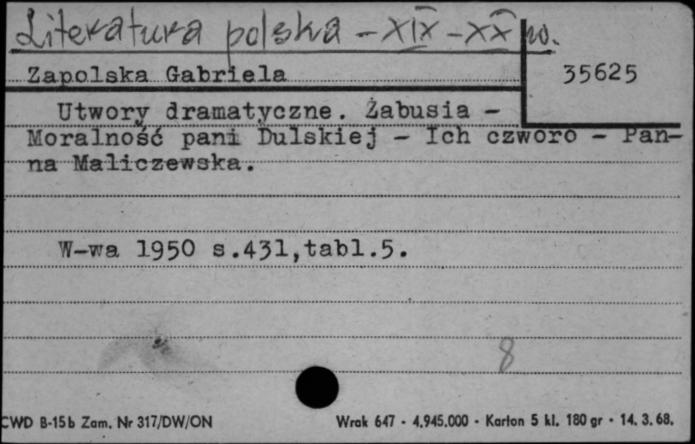 Literatura polska - XIX - XX w.
Zapolska Gabriela
35625
Utwory dramatyczne. Żabusia -
Moralność pani Dulskiej - Ich czworo - Pan-
na Maliczewska.
W-wa 1950 s.431,tabl.5.
8
CWD B-15b Zam. Nr 317/DW/ON
Wrak 647 - 4.945.000 - Karton 5 kl. 180 gr - 14. 3. 68.